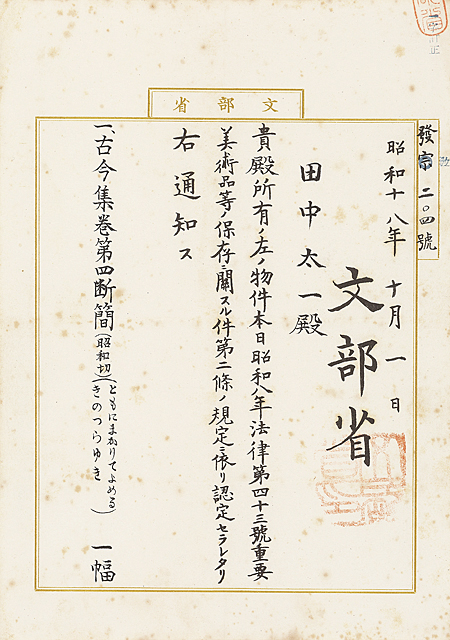 文部省
發宗二〇四號
昭和十八年十月一日
文部省
田中太一殿
貴殿所有ノ左ノ物件本日昭和八年法律第四十三號重要
美術品等ノ保存ニ關スル件第二條ノ規定ニ依リ認定セラレタリ
右通知ス
一、古今集巻第四断簡(昭和切)(ともにまかりてよめる
きのつらゆき)一幅